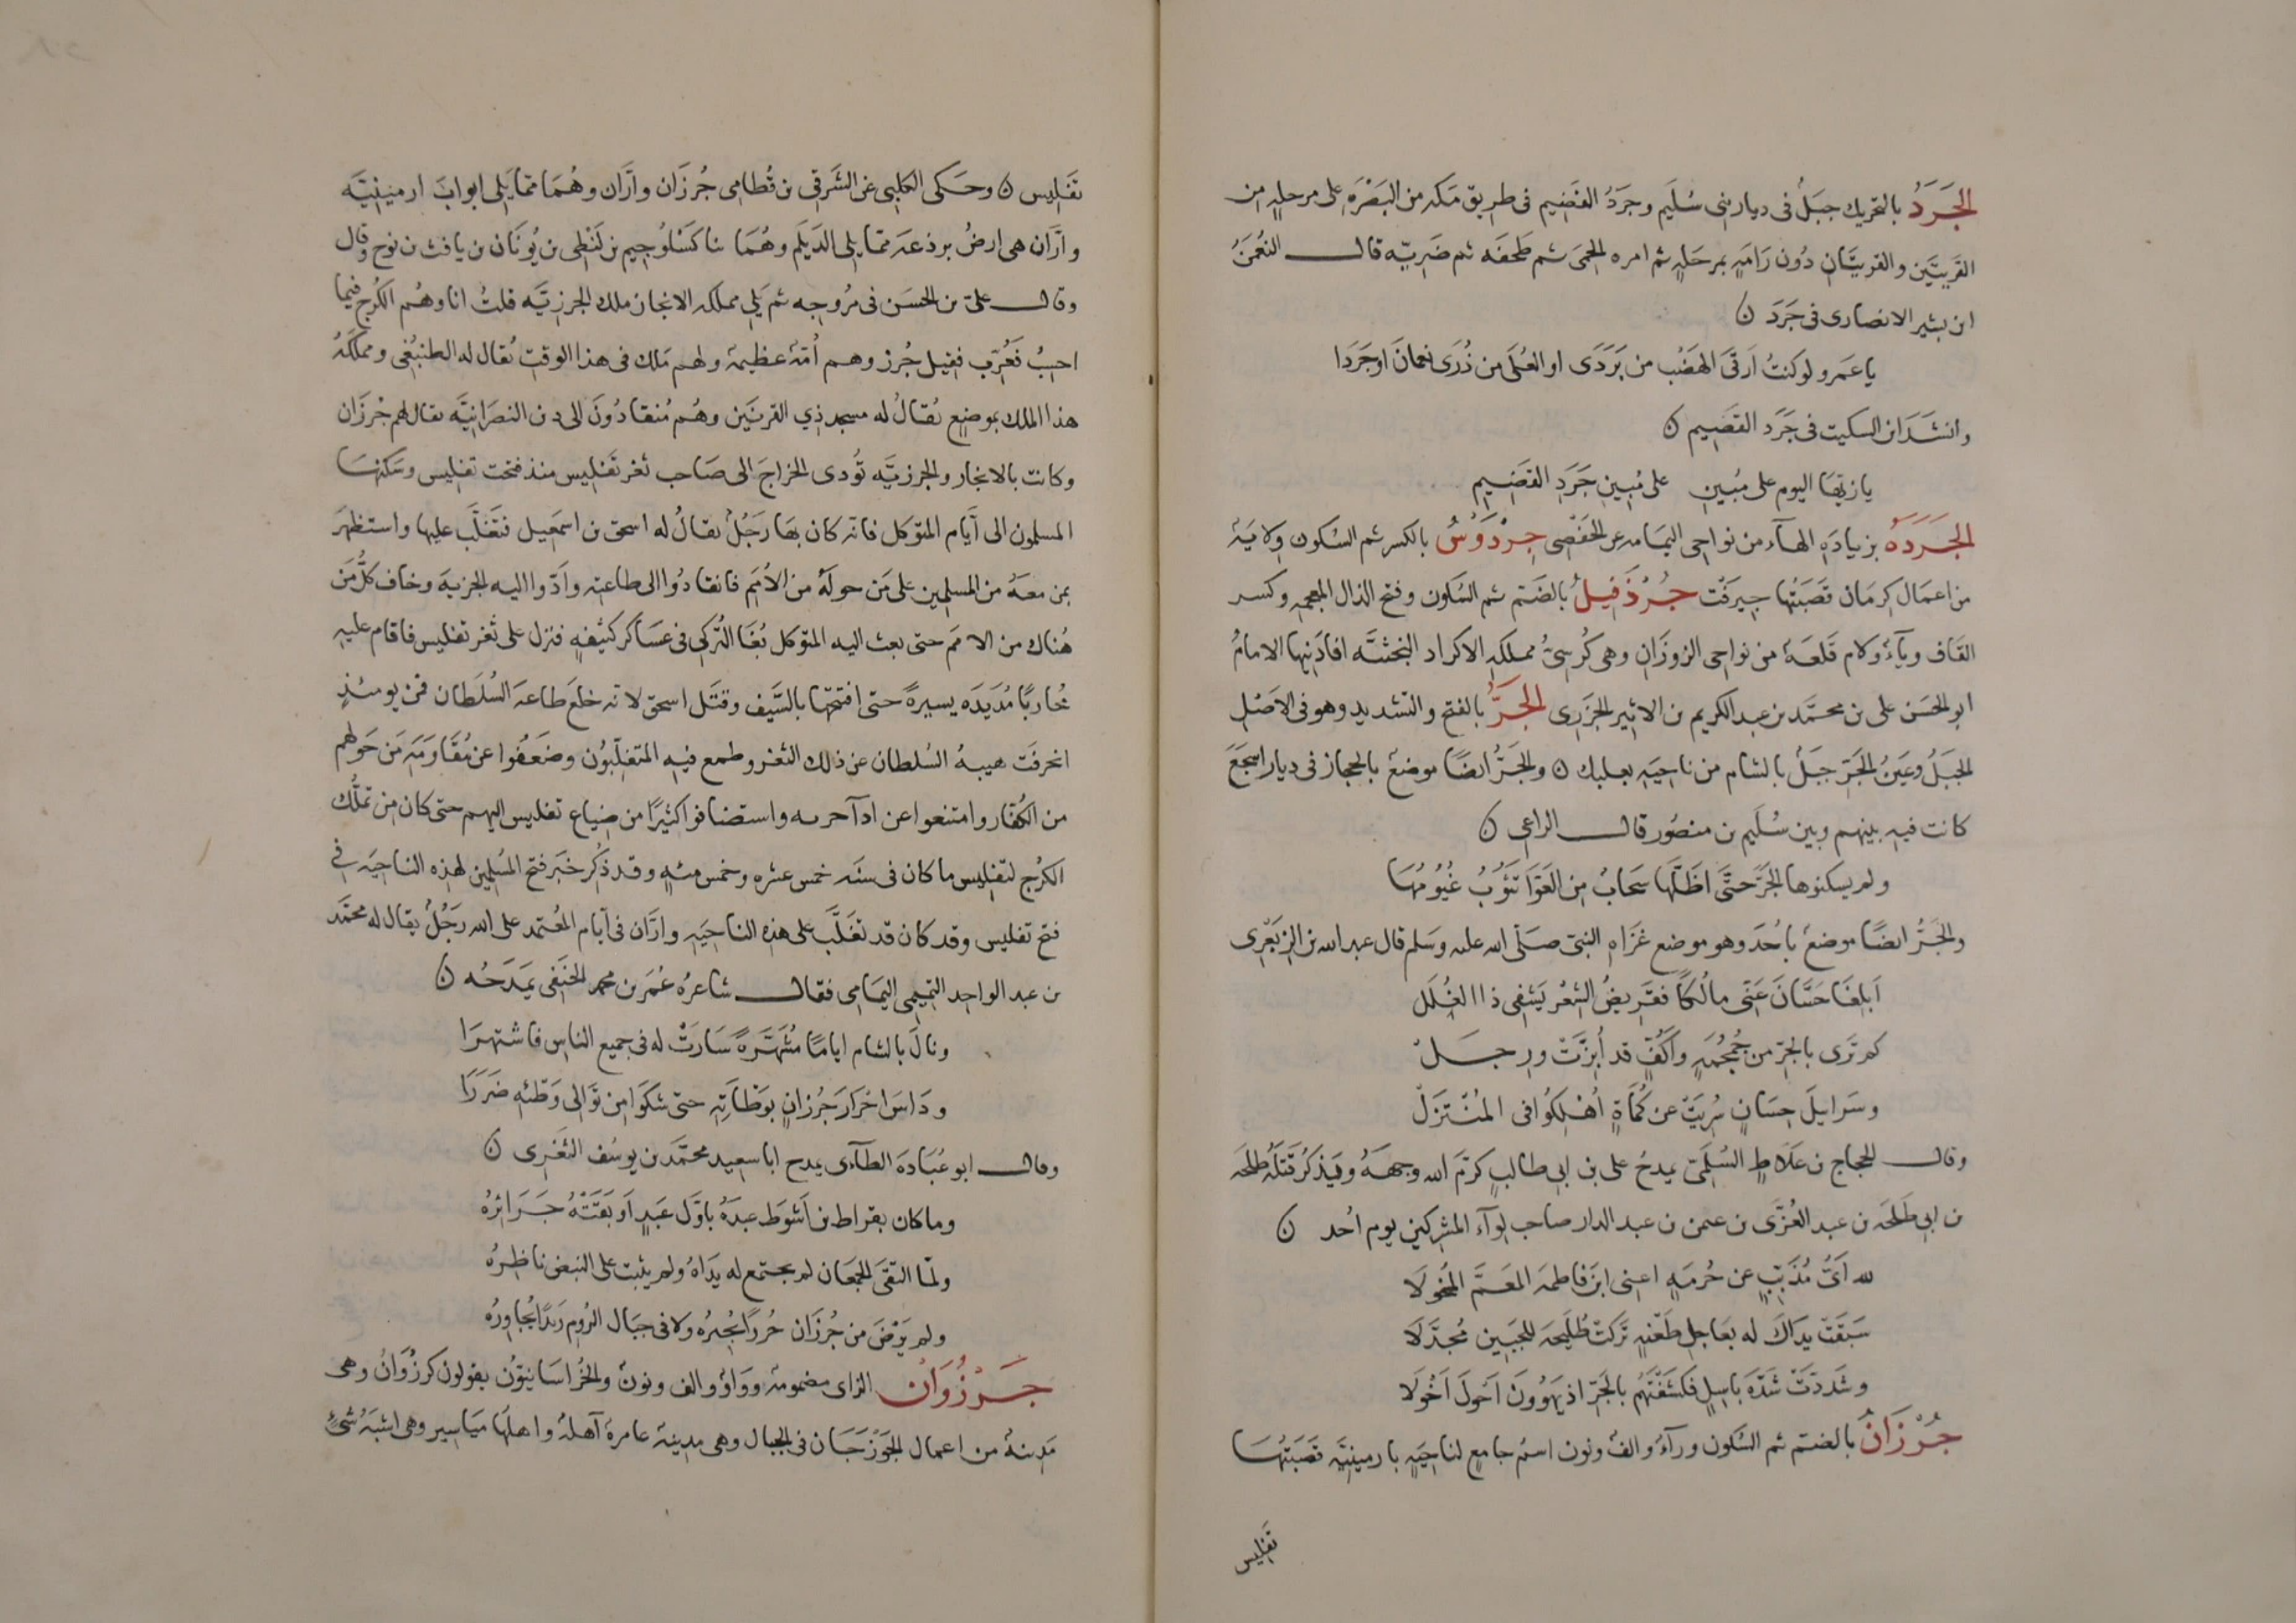 الجَرَدُ بالتحريك جبَلُ فى ديار بنى سُلَيم وجرَدُ القَصِيم فى طريق مَكه من البَصْرَه على مرحلهٍ من
القَريتَين والقريتَانِ دُونَ رَامَهٍ بمرحَلهٍ ثم امره الحِمَى ثم طَخفَه ثم ضَرِيّه قال النعُمَنُ
ابن بشير الانصارى فى جَرَدَ ن
يا عَمرو لو كنتُ اَرقَىَ الهَضْبَ من بَرَدَى او العُلَى من ذُرَى نعمانَ او جَرَدَا
وانشدَ ابن السكيت فى جَرَدِ القَصِيم ن
يا زيهَا اليوم على مُبِينِ على مُبِينِ جَرَدِ القَصِيمِ
الجَرَدَهُ بزيادَهِ الهآء من نواحى اليمَامه عن الحَفْصى جِرْدَوْسُ بالكسر ثم السُكون ولايَهُ
من اعمَال كِرمَان قَصَبَتُها جيرَفْت جُرْذَقِيلُ بالضَم ثم السُكون وفتح الذال المعجمه وكسر
القَاف ويآءُ ولام قَلعَهُ من نواحى الزوزَانِ وهى كُرسىُّ مملكهِ الاكراد البخثيَّه افادَنيها الامامُ
ابو الحَسَن على بن محمّد بن عبد الكريم بن الاثير الجزَرى الجَرُّ بالفتح والتشديد وهو فى الاَصْلِ
الجبَلُ وعَينُ الجَرّ جبَلُ بالشام من ناحيَهِ بعلبك ن والجَرُّ ايضًا موضعُ بالحجاز فى ديار اشجَعَ
كانت فيهِ بينهم وبين سُلَيم بن منصُور قال الراعى ن
ولم يسكنوها الجَرَّ حتَّى اظَلَّها سَحَابُ مِن العَوَّا تَؤُبُ غُيُومُهَا
والجَرُّ ايضًا موضعُ باُحَدَ وهو موضع غَزَاهِ النبى صَلّى الله عله وسَلم قال عبد الله بن الزِبَعْرى
اَبلِغَا حَسَّانَ عَنّى مالُكًا فقَريضُ الشِعْر يَشْفى ذا الغُلَل
كم تَرَى بالجَرّ من جُمْجُمَهٍ واكُفٍّ قد اُبِزَّتْ ورِجسَلْ
وسَرابيلَ حِسَانٍ سُرِيَتْ عن كُمَاةٍ اُهْلِكُوا فى المُنْتَزَلْ
وقال الحجاج بن عِلَاطٍ السُلَمّى يمدح على بن ابى طالبٍ كرَّمَ الله وجهَهُ ويَذكُر قَتْلَهُ طلحَه
بن ابى طَلحَه بن عبد العُزّى بن عثمن بن عبد الدار صاحب لِوآء المشركين يوم اُحُد ن
لله اَىُّ مُذَبّبٍ عن حُرمَهٍ اعنى ابنَ فاطمَه المعَمَّ المُخْوِلَا
سَبَقَتْ يدَاكَ له بعَاجلِ طَعْنهٍ تَركتْ طُلَيحَه للجَبِين مُجَدَّلَا
وشَدَدْتَ شَدَّهَ بَاسِلٍ فكَشَفْتَهُم بالجَرّ اذ يَهوُونَ اَخْوَلَ اَخْوَلَا
جُرْزَانُ بالضم ثم السُكون ورآءُ والفُ ونون اسمُ جامعٍ لناحيَهٍ بارمينيَه قَصَبَتُها
تفليس
تَفْلِيس ن وحَكى الكلبى عن الشَرقى بن قُطامى جُرزَان وارَّان وهُمَا ممّا يَلى ابوابَ ارمينيَّه
وارَّان هى ارضُ برذعَه ممّا يلى الدَيلَم وهُمَا بنا كَسْلُوجيم بن لَنْطى بن يُونَان بن يافث بن نوح وقال
وقال علىّ بن الحسَن فى مُروجِه ثم يَلى مملكه الابخان ملك الجرزيَّه قلتُ انا وهُم الكُرج فيما
احسِبُ فعُرّب فقيل جُرز وهم اُمّهُ عظيمهُ ولهم مَلك فى هذا الوقت يُقال له الطنبُغى ومملكَهُ
هذا الملك بموضعٍ يُقالُ له مسجد ذِي القرنَين وهُم مُنقادُونَ الى دِن النصرَانيَّه يقال لهم جُرزَان
وكانت بالابخار والجرزيَّه تُودى الخراجَ الى صَاحب ثغر تَفليس منذ فتحت تفليس وسَكنها
المسلمون الى اَيّام المتوَكل فانّه كان بهَا رَجُلُ يقالُ له اسحق بن اسمَعِيل فتَغَلَّب عليها واستظهرَ
بمن معَهُ من المسلمين على مَن حولَهُ من الاُمَم فانقادُوا الى طاعته واَدّوا اليه الجزيهَ وخافَ كلُّ مَن
هُناك من الامَم حتى بعث اليه المتوكل بُغَا التُركى فى عسَاكر كثيفهٍ فنزل على ثغر تفليس فاقام عليهِ
مُحَاربًا مُدَيدَه يسيرهً حتى افتتحَها بالسَّيف وقتَل اسحق لانه خلعَ طاعهَ السُلطَان فمن يومئذٍ
انخرفَت هيبهُ السُلطان عن ذلك الثغر وطمع فيه المتغلّبُون وضعَفُوا عن مُقَاوَمَهِ مَن حَولهم
من الكُفّار وامتنعوا عن ادآ حربه واستضافوا كثيرًا من ضياع تفليس اليهم حتى كان من تملُّك
الكرُج لتفليس ما كان فى سنَه خمس عشره وخمس مئهٍ وقد ذُكِر خبَر فتح المُسلمين لهذِه الناحيَه فى
فتح تفليس وقد كان قد تغَلَّبَ على هذِه الناحيَهِ وارَّان فى اَيّام المُعتمد على الله رَجُلُ يقال له محمّد
بن عبد الواحِد التَميمى اليمَامى فقال شاعرُه عُمَر بن محمد الحنَفى يَمدَحُه ن
ونالَ بالشام ايامًا مُشَهَّرَهً سَارَتْ له فى جميع الناسِ فاشتهرَا
ودَاسَ احْرَارَ جُرزانٍ بوَطْأتِهِ حتى شكَوا من تَوالى وَطْئهِ ضَرَرَا
وقال ابو عُبَادَه الطآءى يمدح ابا سعيد محمّد بن يوسُف الثَغْرى ن
وما كان بقراط بن اَشوَط عبدَهُ باوّل عَبدٍ اَوبَقَتْهُ جَرَايرُهْ
ولمّا التقَى الجمعَان لم يجتمع له يدَاهُ ولم يثبت على النبض ناظرُهْ
ولم يَرْضَ من جُرزَان حُررًا يُجيرُه ولا فى جبَال الرُوم رَيدًا يُجاوِرُه
جَرْزُوَانُ الزاى مضمومهُ ووَاوُ والف ونونُ والخُراسَانيّون يقولون كَرزُوَانُ وهى
مَدِينهُ من اعمال الجَوزجَان فى الجبال وهى مدِينهُ عامرهُ آهلهُ واهلها ميَاسير وهى اشبَهُ شىءٍ